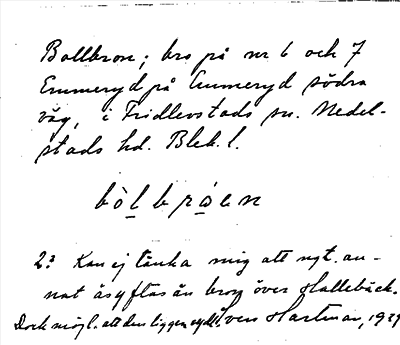 Bollbron; bro på nr 6 och 7
Emmeryd på Emmeryd södra
väg, i Fridlevstads sn. Medel-
stads hd. Blek. l.
bòlbråen
2? Kan ej tänka mig att ngt. an-
nat åsyftas än bron över Hallebäck.
Dock möjl. att den ligger sydl. även Hartman, 1939